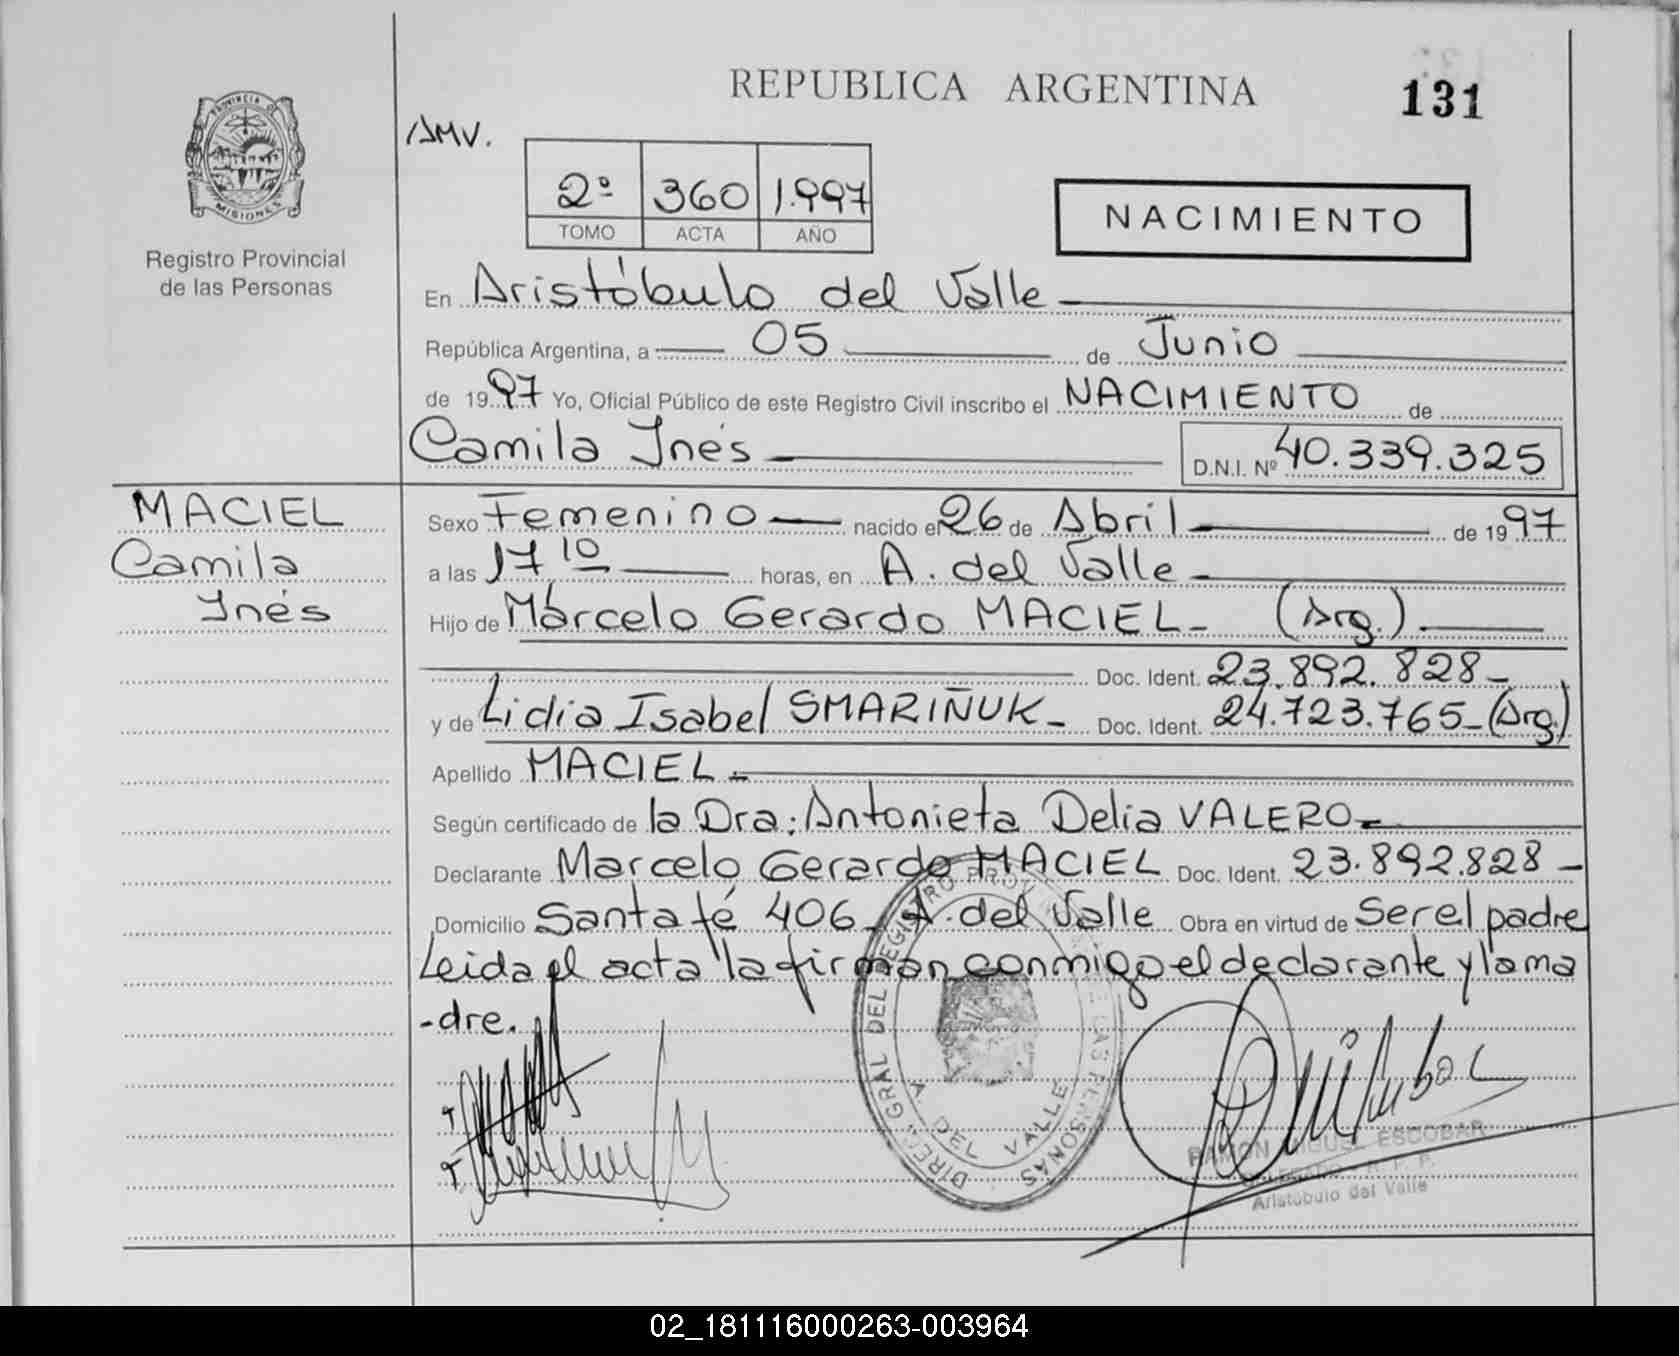 REPUBLICA ARGENTINA
131
AMV.
PROVINCIA DE
MISIONES
Registro Provincial
de las Personas
2º 360 1.997
TOMO ACTA AÑO
NACIMIENTO
En Aristóbulo del Valle
República Argentina, a 05 de Junio
de 1997 Yo, Oficial Público de este Registro Civil inscribo el NACIMIENTO de
Camila Inés D.N.I. Nº 40.339.325
MACIEL
Camila
Inés
Sexo Femenino nacido el 26 de Abril de 1997
a las 17 10 horas, en A. del Valle
Hijo de Marcelo Gerardo MACIEL (Arg.)
Doc. Ident. 23.892.828
y de Lidia Isabel SMARIÑUK Doc. Ident. 24.723.765 (Arg)
Apellido MACIEL
Según certificado de la Dra: Antonieta Delia VALERO
Declarante Marcelo Gerardo MACIEL Doc. Ident. 23.892.828
Domicilio Santa fé 406 A. del Valle Obra en virtud de Ser el padre
Leida el acta la firman conmigo el declarante y la ma
-dre.
DIREC. GRAL DEL REGISTRO PROV. DE LAS PERSONAS
A. DEL VALLE
RAMON MIGUEL ESCOBAR
DELEGADO R. P. P.
Aristóbulo del Valle
02_181116000263-003964